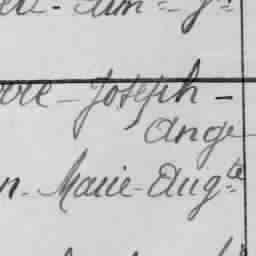 rre - Joseph -
Ange -
n. Marie - Aug.te